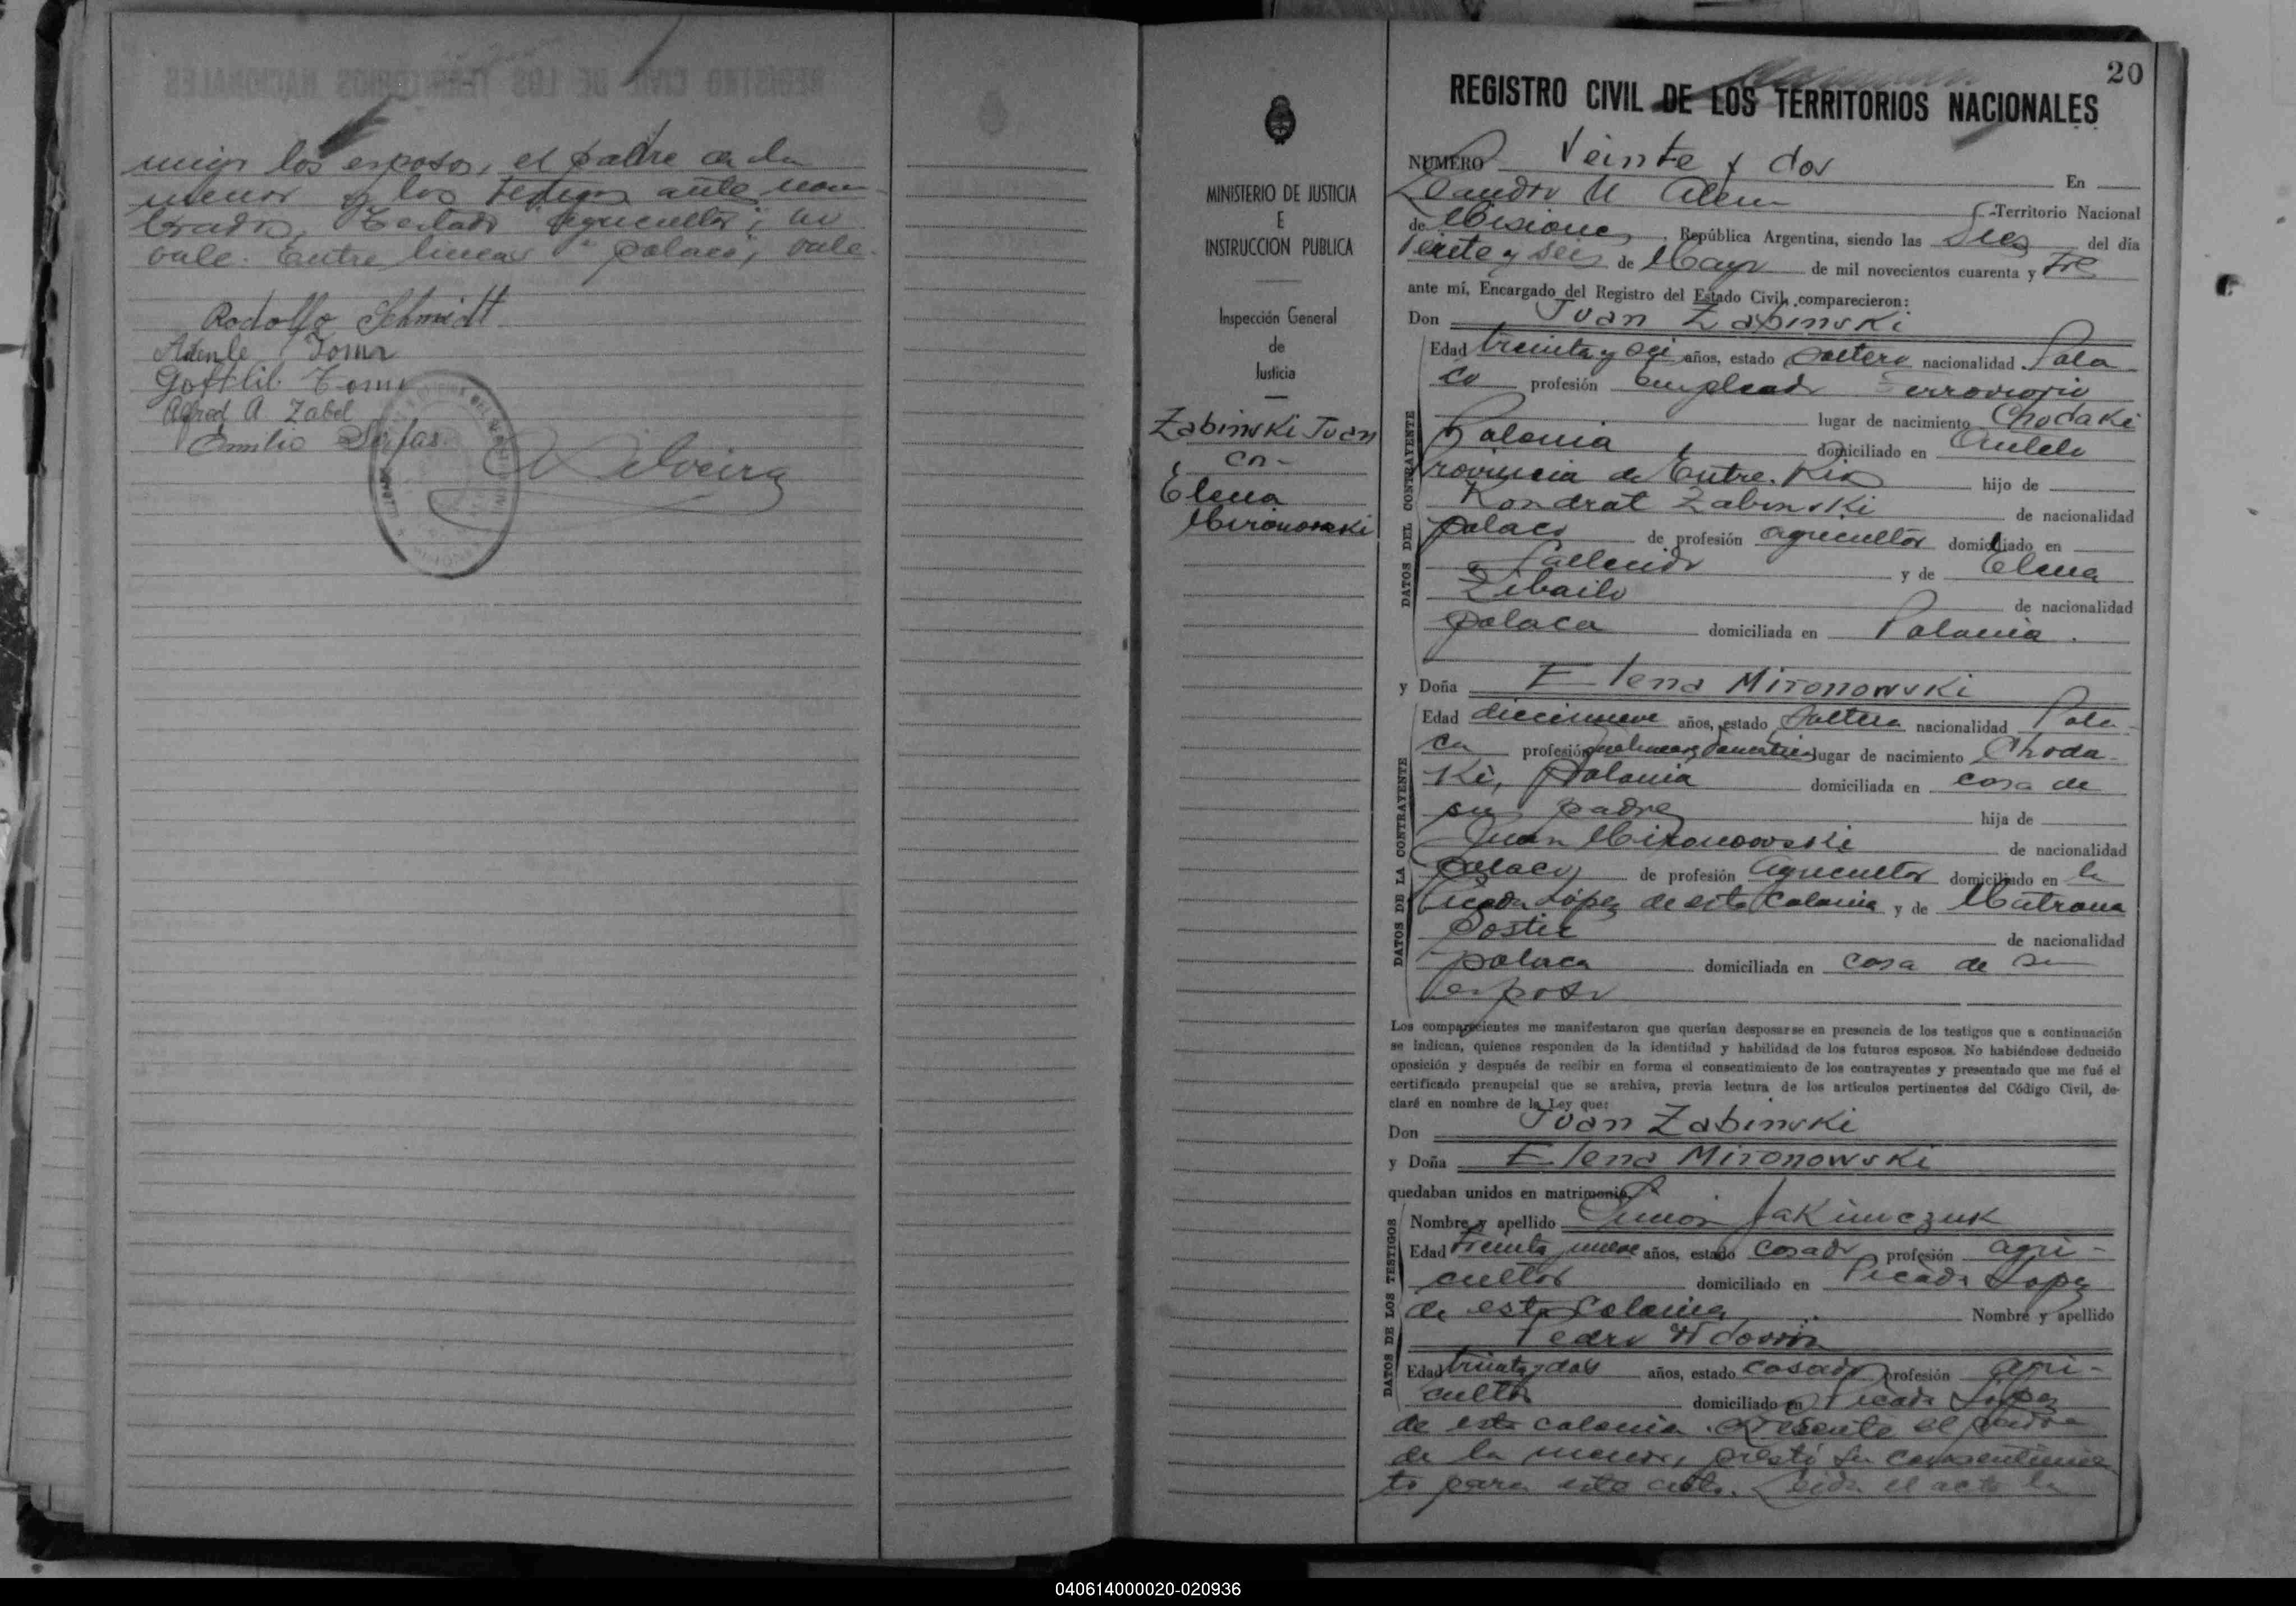 los esposos, el padre de la
menor y los testigos ante nom
brados, Testado "agricultor", no
vale. Entre lineas "polaco", vale.
Rodolfo Schmidt
Tomm
Gottlib Tomm
Alfred A. Zabel
Emilio
Silveira
20
REGISTRO CIVIL DE LOS TERRITORIOS NACIONALES
MINISTERIO DE JUSTICIA
E
INSTRUCCION PUBLICA
Inspección General
de
Justicia
Zabinski Juan
con
Elena
Mironowski
NUMERO Veinte y dos En
Leandro N Alem Territorio Nacional
de Misiones, República Argentina, siendo las diez del día
Veinte y seis de Mayo de mil novecientos cuarenta y tres
ante mí, Encargado del Registro del Estado Civil, comparecieron:
Don Juan Zabinski
Edad treinta y sei años, estado soltero nacionalidad Pola
co profesión empleado Ferroviario
lugar de nacimiento Chodaki
Polonia domiciliado en
Provincia de Entre Rios hijo de
Kondrat Zabinski de nacionalidad
polaco de profesión agricultor domiciliado en
Fallecido y de Elena
de nacionalidad
polaca domiciliada en Polonia.
DATOS DEL CONTRAYENTE
y Doña Elena Mironowski
Edad diecinueve años, estado soltera nacionalidad Pola
ca profesión lugar de nacimiento Choda-
ki, Polonia domiciliada en casa de
su padre hija de
Juan Mironowski de nacionalidad
polaco de profesión agricultor domiciliado en la
Picada López de esta Colonia y de Matrona
Postir de nacionalidad
polaca domiciliada en casa de su
esposo
DATOS DE LA CONTRAYENTE
Los comparecientes me manifestaron que querían desposarse en presencia de los testigos que a continuación
se indican, quienes responden de la identidad y habilidad de los futuros esposos. No habiéndose deducido
oposición y después de recibir en forma el consentimiento de los contrayentes y presentado que me fué el
certificado prenupcial que se archiva, previa lectura de los artículos pertinentes del Código Civil, de-
claré en nombre de la Ley que:
Don Juan Zabinski
y Doña Elena Mironowski
quedaban unidos en matrimonio.
Nombre y apellido Simon Jakimczuk
Edad treinta nueve años, estado casado profesión agri-
cultor domiciliado en Picada Lopez
de esta Colonia Nombre y apellido
Pedro
Edad treinta y dos años, estado casado profesión agri-
cultor domiciliado en Picada López
DATOS DE LOS TESTIGOS
de esta colonia. Presente el padre
de la menor, prestó su consentimien
to para este acto. Leida el acta la
040614000020-020936